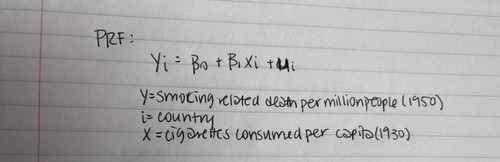 PRF:
Yi = β0 + β1Xi + ui
Y=smoking related death per million people (1950)
i= country
X = cigarettes consumed per capita (1930)